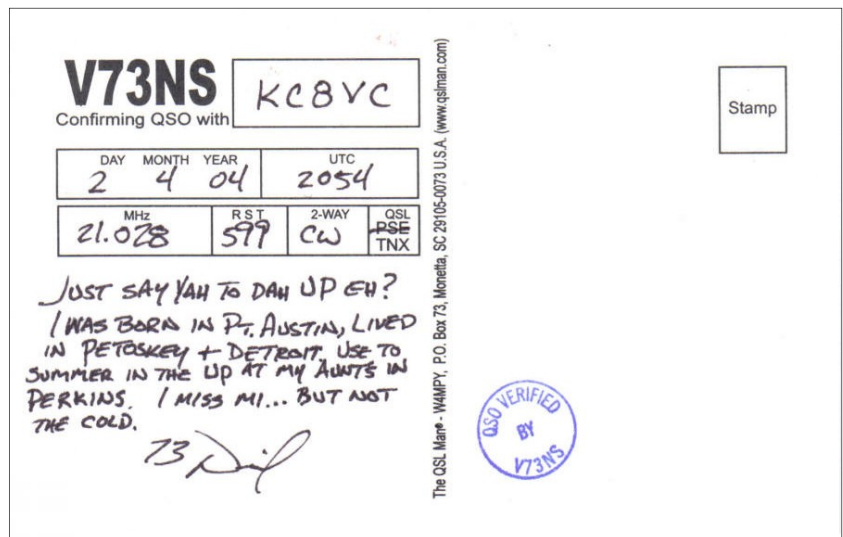 V73NS
Confirming QSO with
KC8VC
DAY MONTH YEAR UTC
2 4 04 2054
MHz RST 2-WAY QSL
21.028 599 CW PSE
TNX
JUST SAY YAH TO DAH UP EH?
I WAS BORN IN PT. AUSTIN, LIVED
IN PETOSKEY + DETROIT. USE TO
SUMMER IN THE UP AT MY AUNTS IN
PERKINS. I MISS MI... BUT NOT
THE COLD.
73
The QSL Man® - W4MPY, P.O. Box 73, Monetta, SC 29105-0073 U.S.A. (www.qslman.com)
Stamp
QSO VERIFIED
BY
V73NS